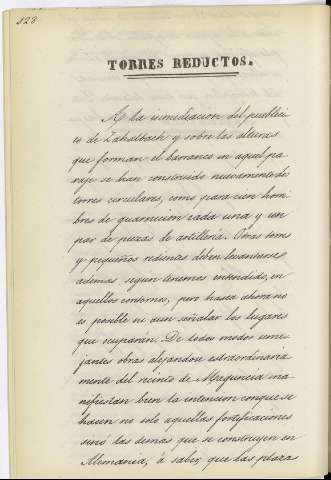 128
TORRES REDUCTOS.
A la inmediacion del puebleci
to de Zahalbach y sobre las alturas
que forman el barranco en aquel pa
raje se han construido nuevamente dos
torres circulares, como para cien hom
bres de guarnicion cada una y un
par de piezas de artilleria. Otras torres
y pequeños reductos deben levantarse
ademas segun tenemos entendido, en
aquellos contornos, pero hasta ahora no
es posible ni aun señalar los lugares
que ocuparán. De todos modos seme
jantes obras alejandose extraordinaria
mente del recinto de Maguncia ma
nifiestan bien la intencion con que se
hacen no solo aquellas fortificaciones
sinó las demas que se construyen en
Alemania, á saber, que las plazas